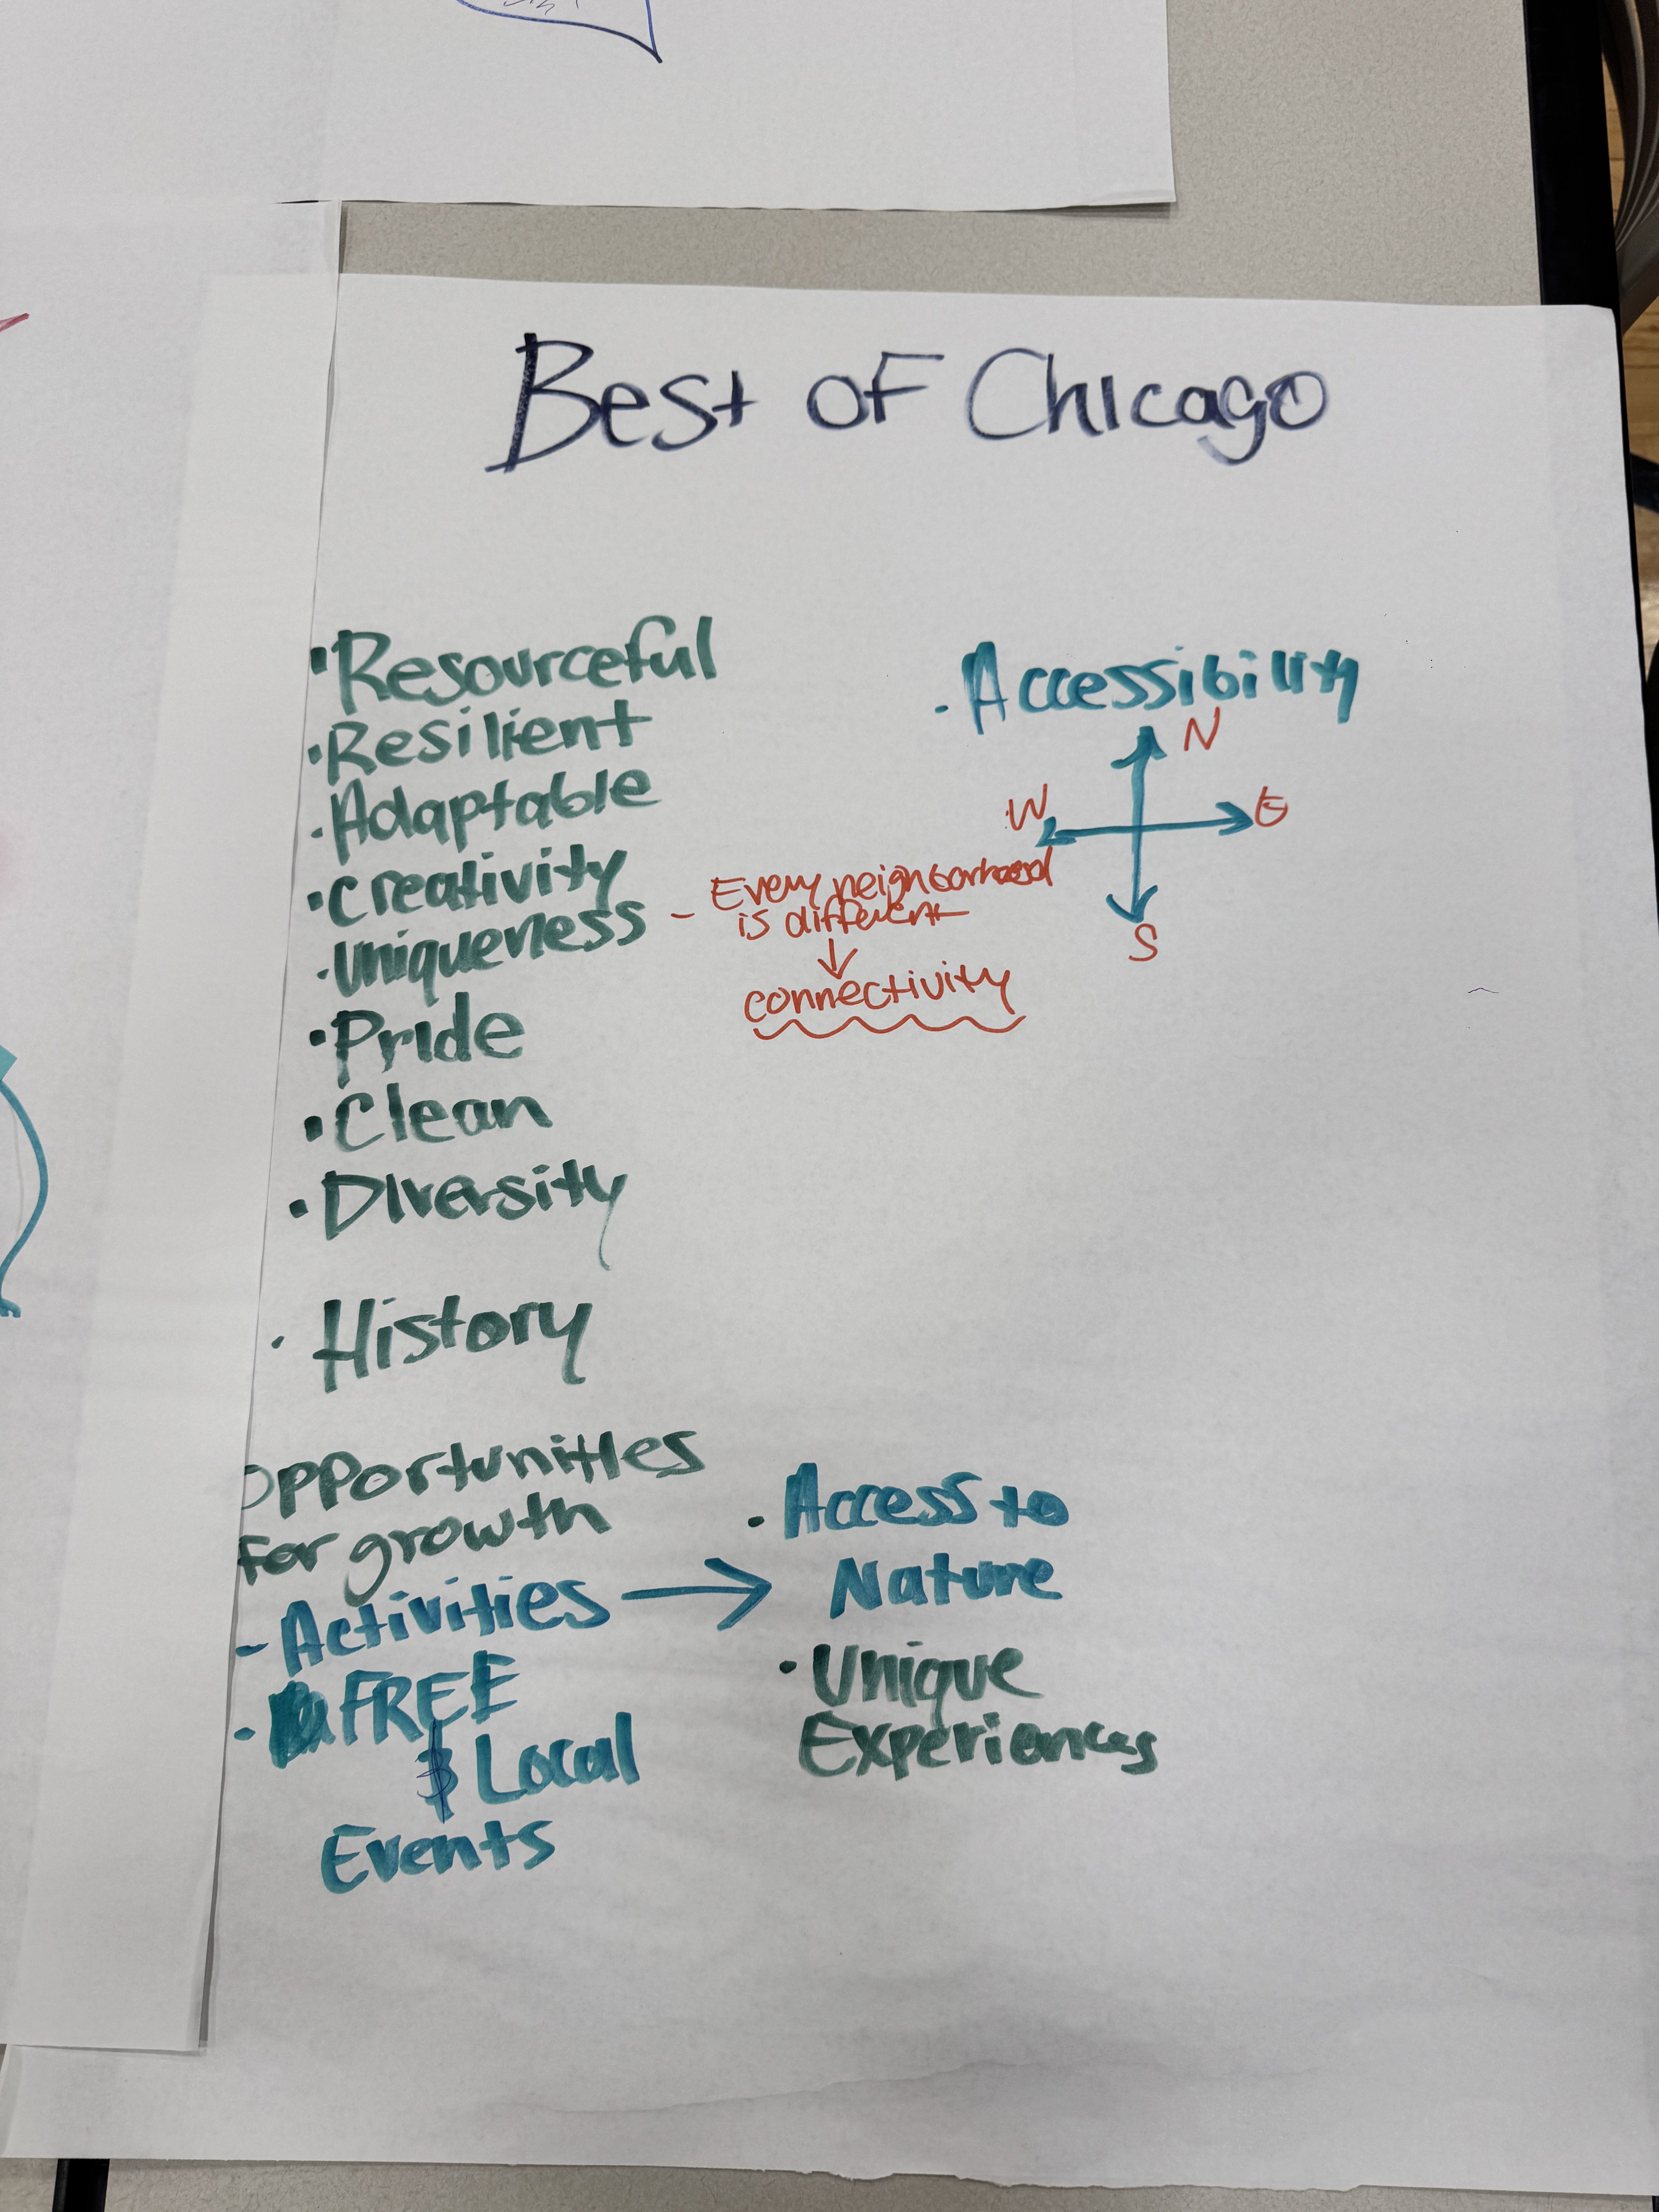 Best of Chicago
• Resourceful
• Resilient
• Adaptable
• Creativity
• Uniqueness - Every neighborhood
is different
↓
connectivity
• Pride
• Clean
• Diversity
• History
Opportunities
for growth
- Activities →
• FREE
& Local
Events
• Accessibility
N
W E
S
• Access to
Nature
• Unique
Experiences